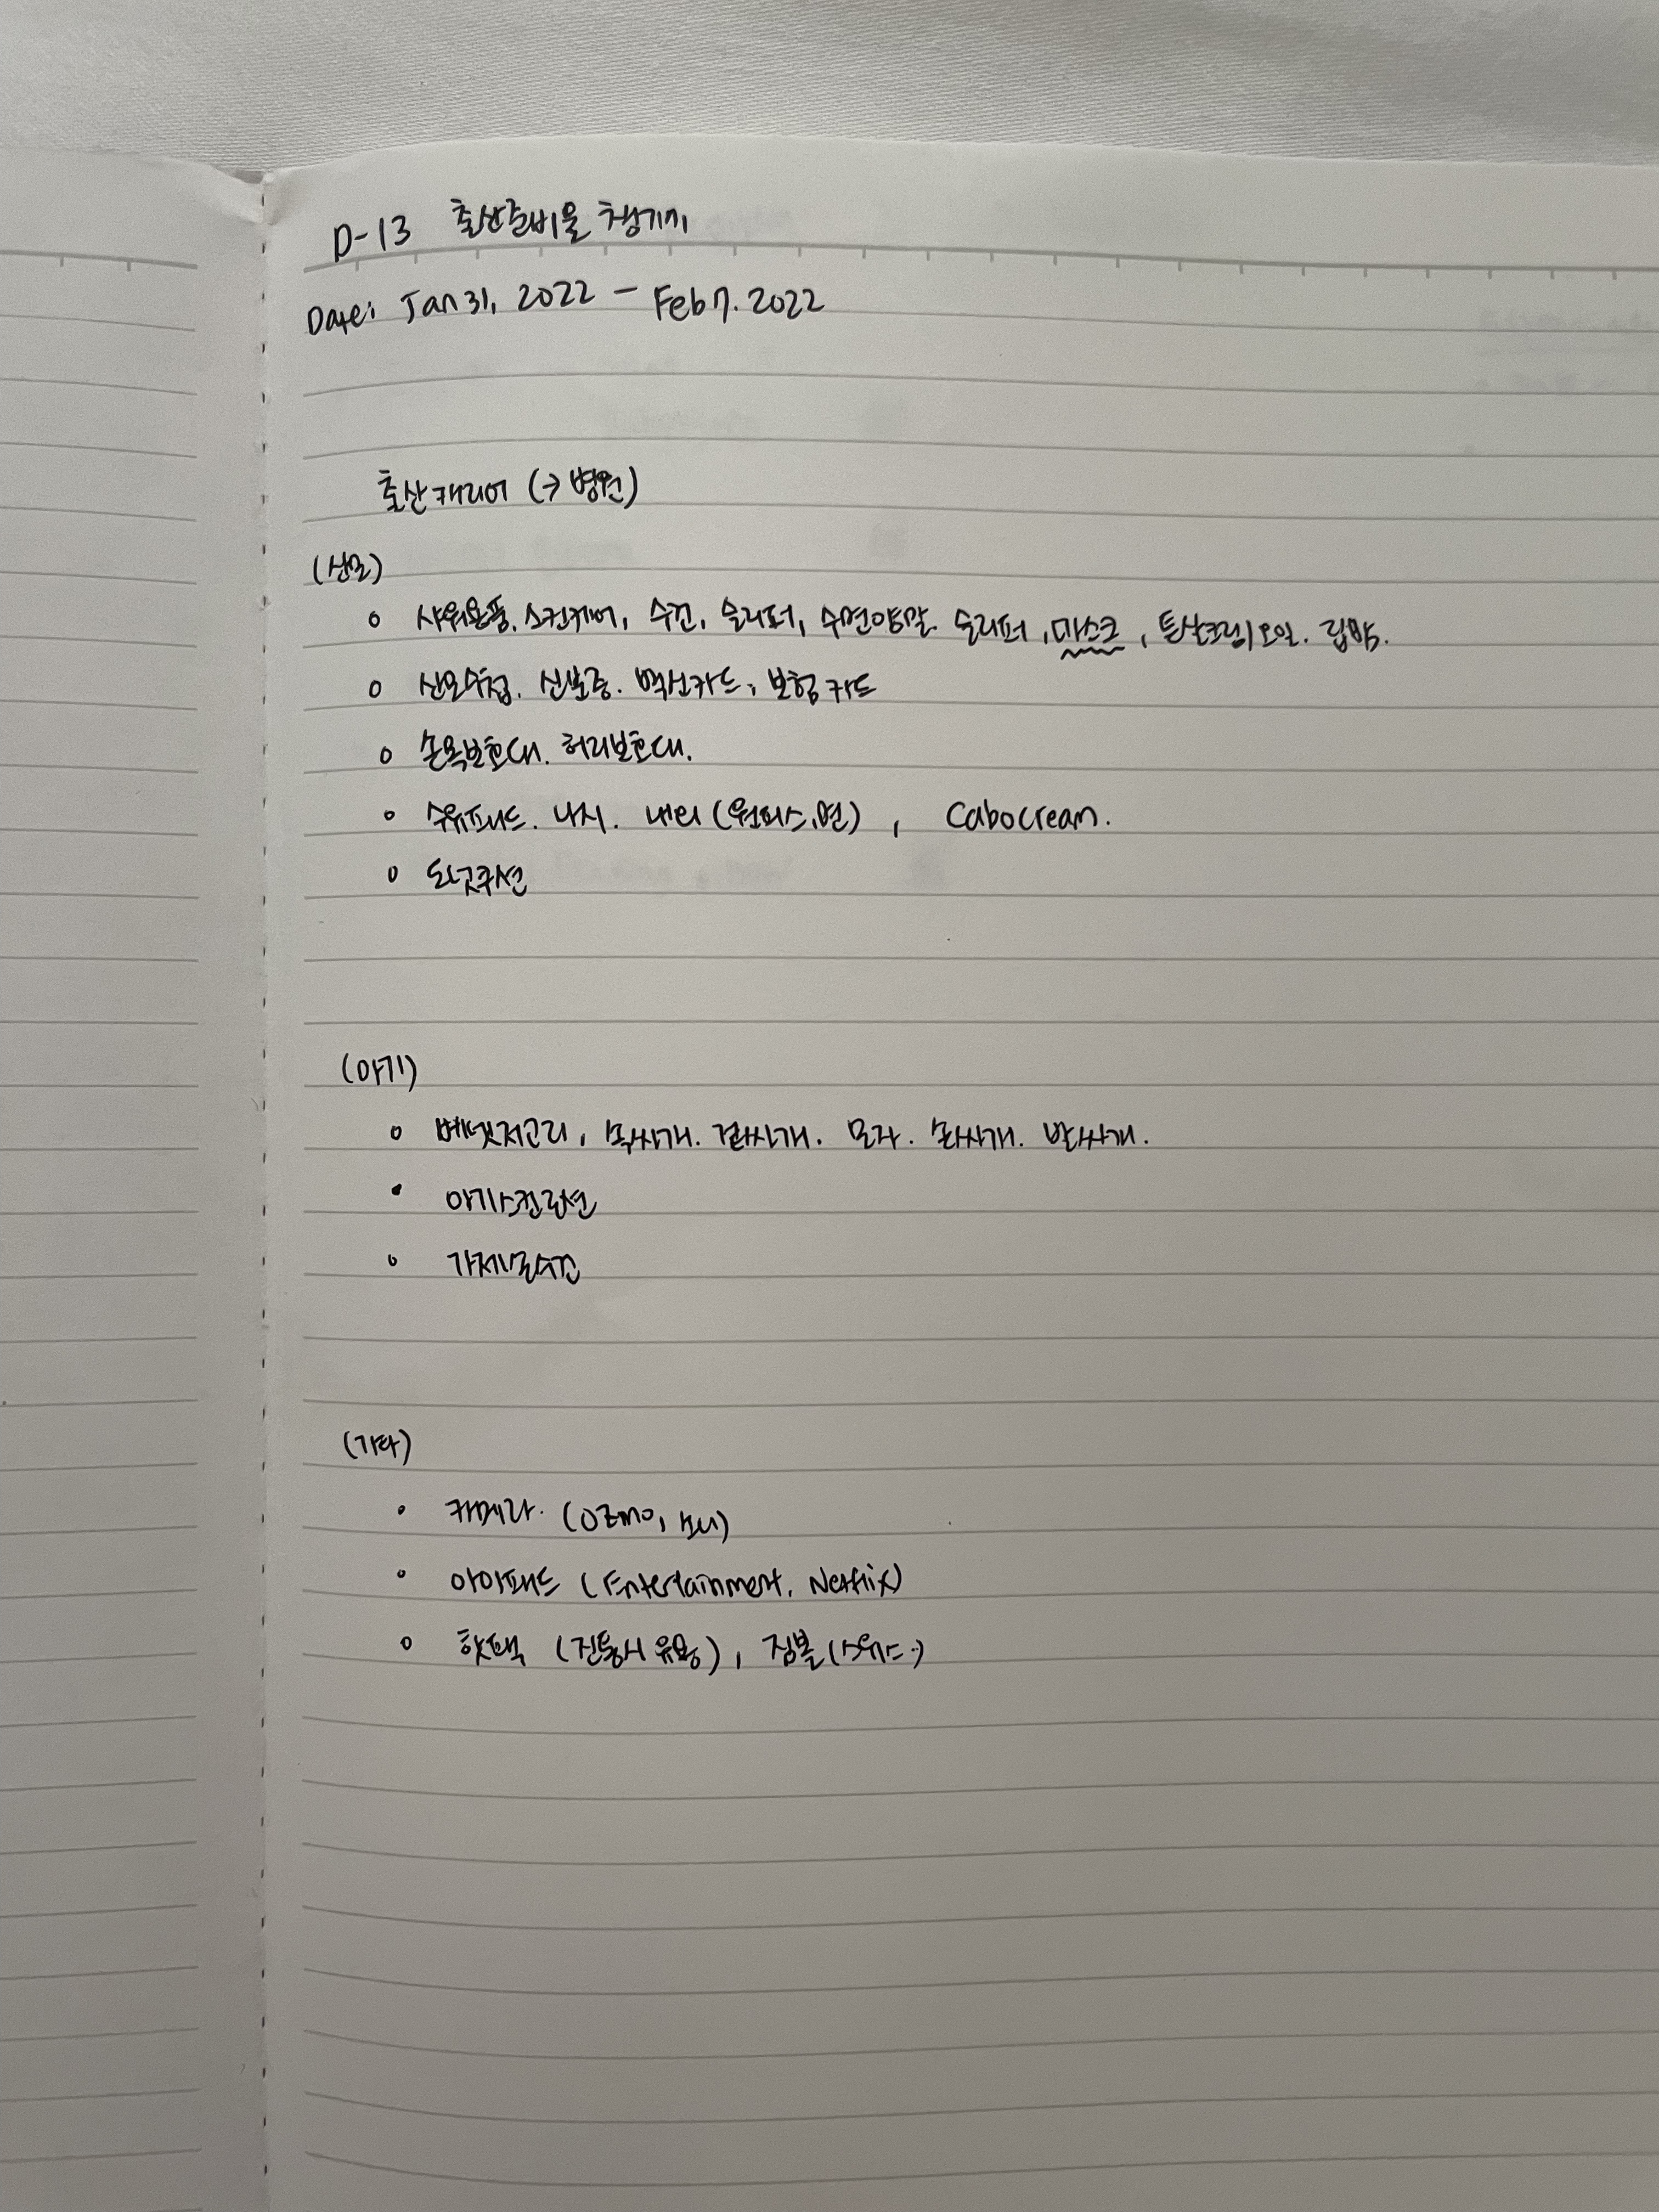 D-13 출산준비물 챙기기
Date: Jan 31, 2022 - Feb 7. 2022
출산캐리어 (→ 병원)
(산모)
샤워용품. 스킨케어, 수건, 슬리퍼, 수면양말. 슬리퍼, 마스크, 튼살크림/오일. 립밤.
산모수첩. 신분증. 백신카드, 보험카드
손목보호대. 허리보호대.
수유패드. 나시. 내의 (원피스, 면), Cabocream.
도넛쿠션
(아기)
베넷저고리, 속싸개. 겉싸개. 모자. 손싸개. 발싸개.
아기스킨로션
가제손수건
(기타)
카메라. (Ozmo, 소니)
아이패드 (Entertainment, Netflix)
핫팩 (진통시 유용), 짐볼